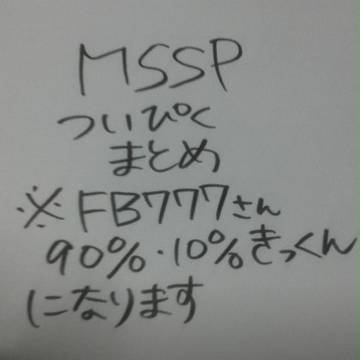 MSSP
ついぴく
まとめ
※FB777さん
90%・10%きっくん
になります